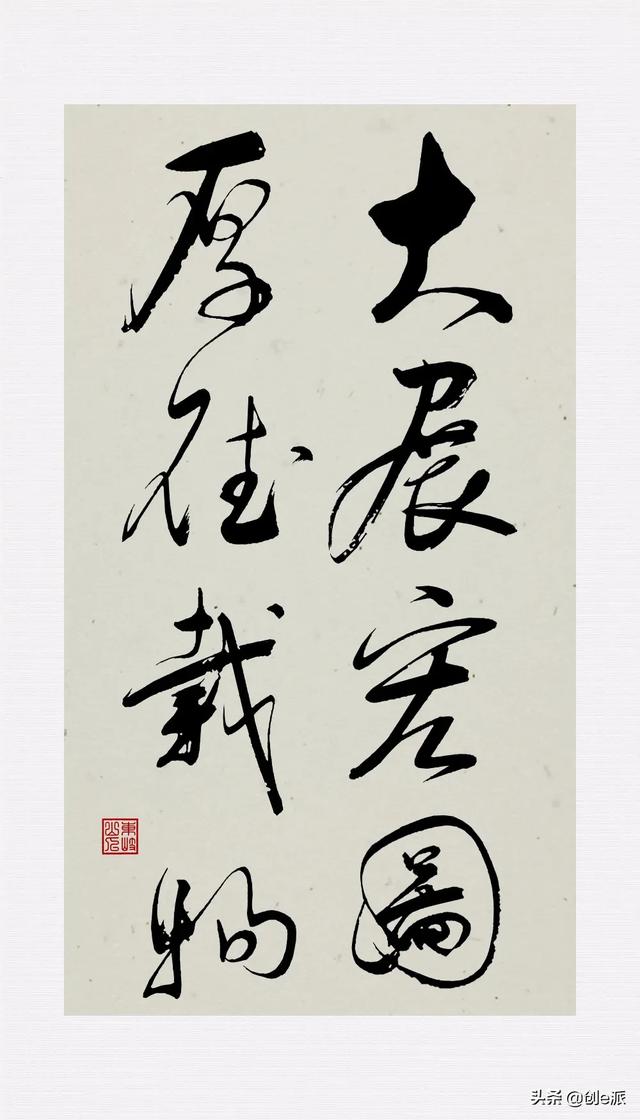 大展宏圖
厚德載物
头条 @创e派